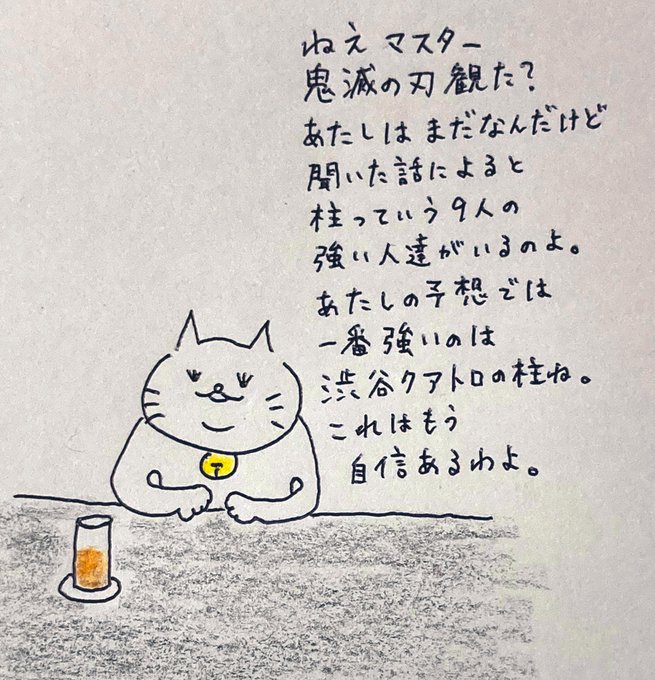 ねえ マスター
鬼滅の刃 観た?
あたしは まだなんだけど
聞いた話によると
柱っていう9人の
強い人達がいるのよ。
あたしの予想では
一番強いのは
渋谷クアトロの柱ね。
これはもう
自信あるわよ。